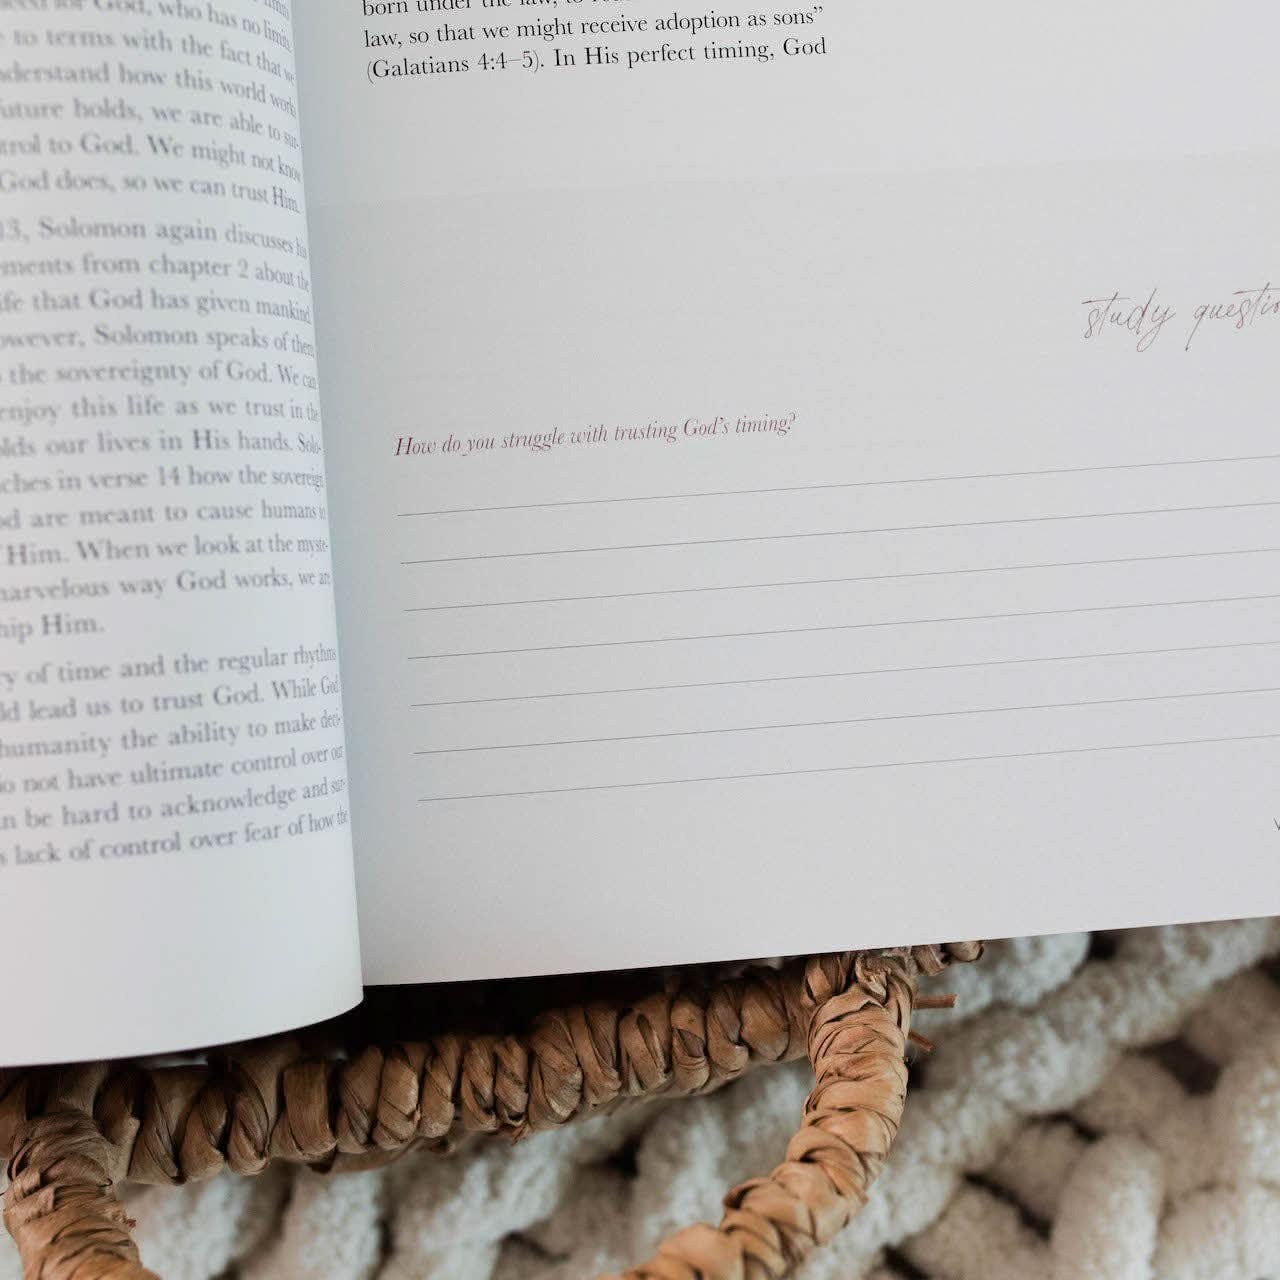 for God, who has no limits,
to terms with the fact that we
nderstand how this world works
future holds, we are able to sur-
trol to God. We might not know
God does, so we can trust Him.
13, Solomon again discusses his
ements from chapter 2 about the
ife that God has given mankind.
owever, Solomon speaks of them
the sovereignty of God. We can
enjoy this life as we trust in the
olds our lives in His hands. Solo-
ches in verse 14 how the sovereign
od are meant to cause humans to
Him. When we look at the myste-
marvelous way God works, we are
hip Him.
y of time and the regular rhythms
ld lead us to trust God. While God
humanity the ability to make deci-
o not have ultimate control over our
n be hard to acknowledge and sur-
s lack of control over fear of how the
born under the law, to
law, so that we might receive adoption as sons”
(Galatians 4:4–5). In His perfect timing, God
study questio
How do you struggle with trusting God’s timing?